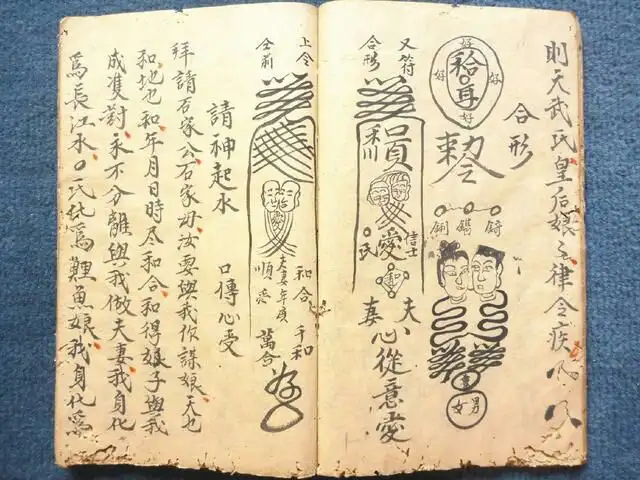 則天武氏皇后娘〻律令疾
合形
好
好 好
好
勅令
女 男
又符
合形
禾川
愛
信士
氏
和
夫
妻
心從意愛
上仝
仝前
和合 千和
夫妻年庚
順意 萬合
請神起水 口傳心受
拜請石家公石家母汝要與我你謀娘〻天也
和地也和年月日時尽和合和得娘子與我
成双對永不分離與我做夫妻我身化
為長江水口氏化為鯉魚娘我身化為